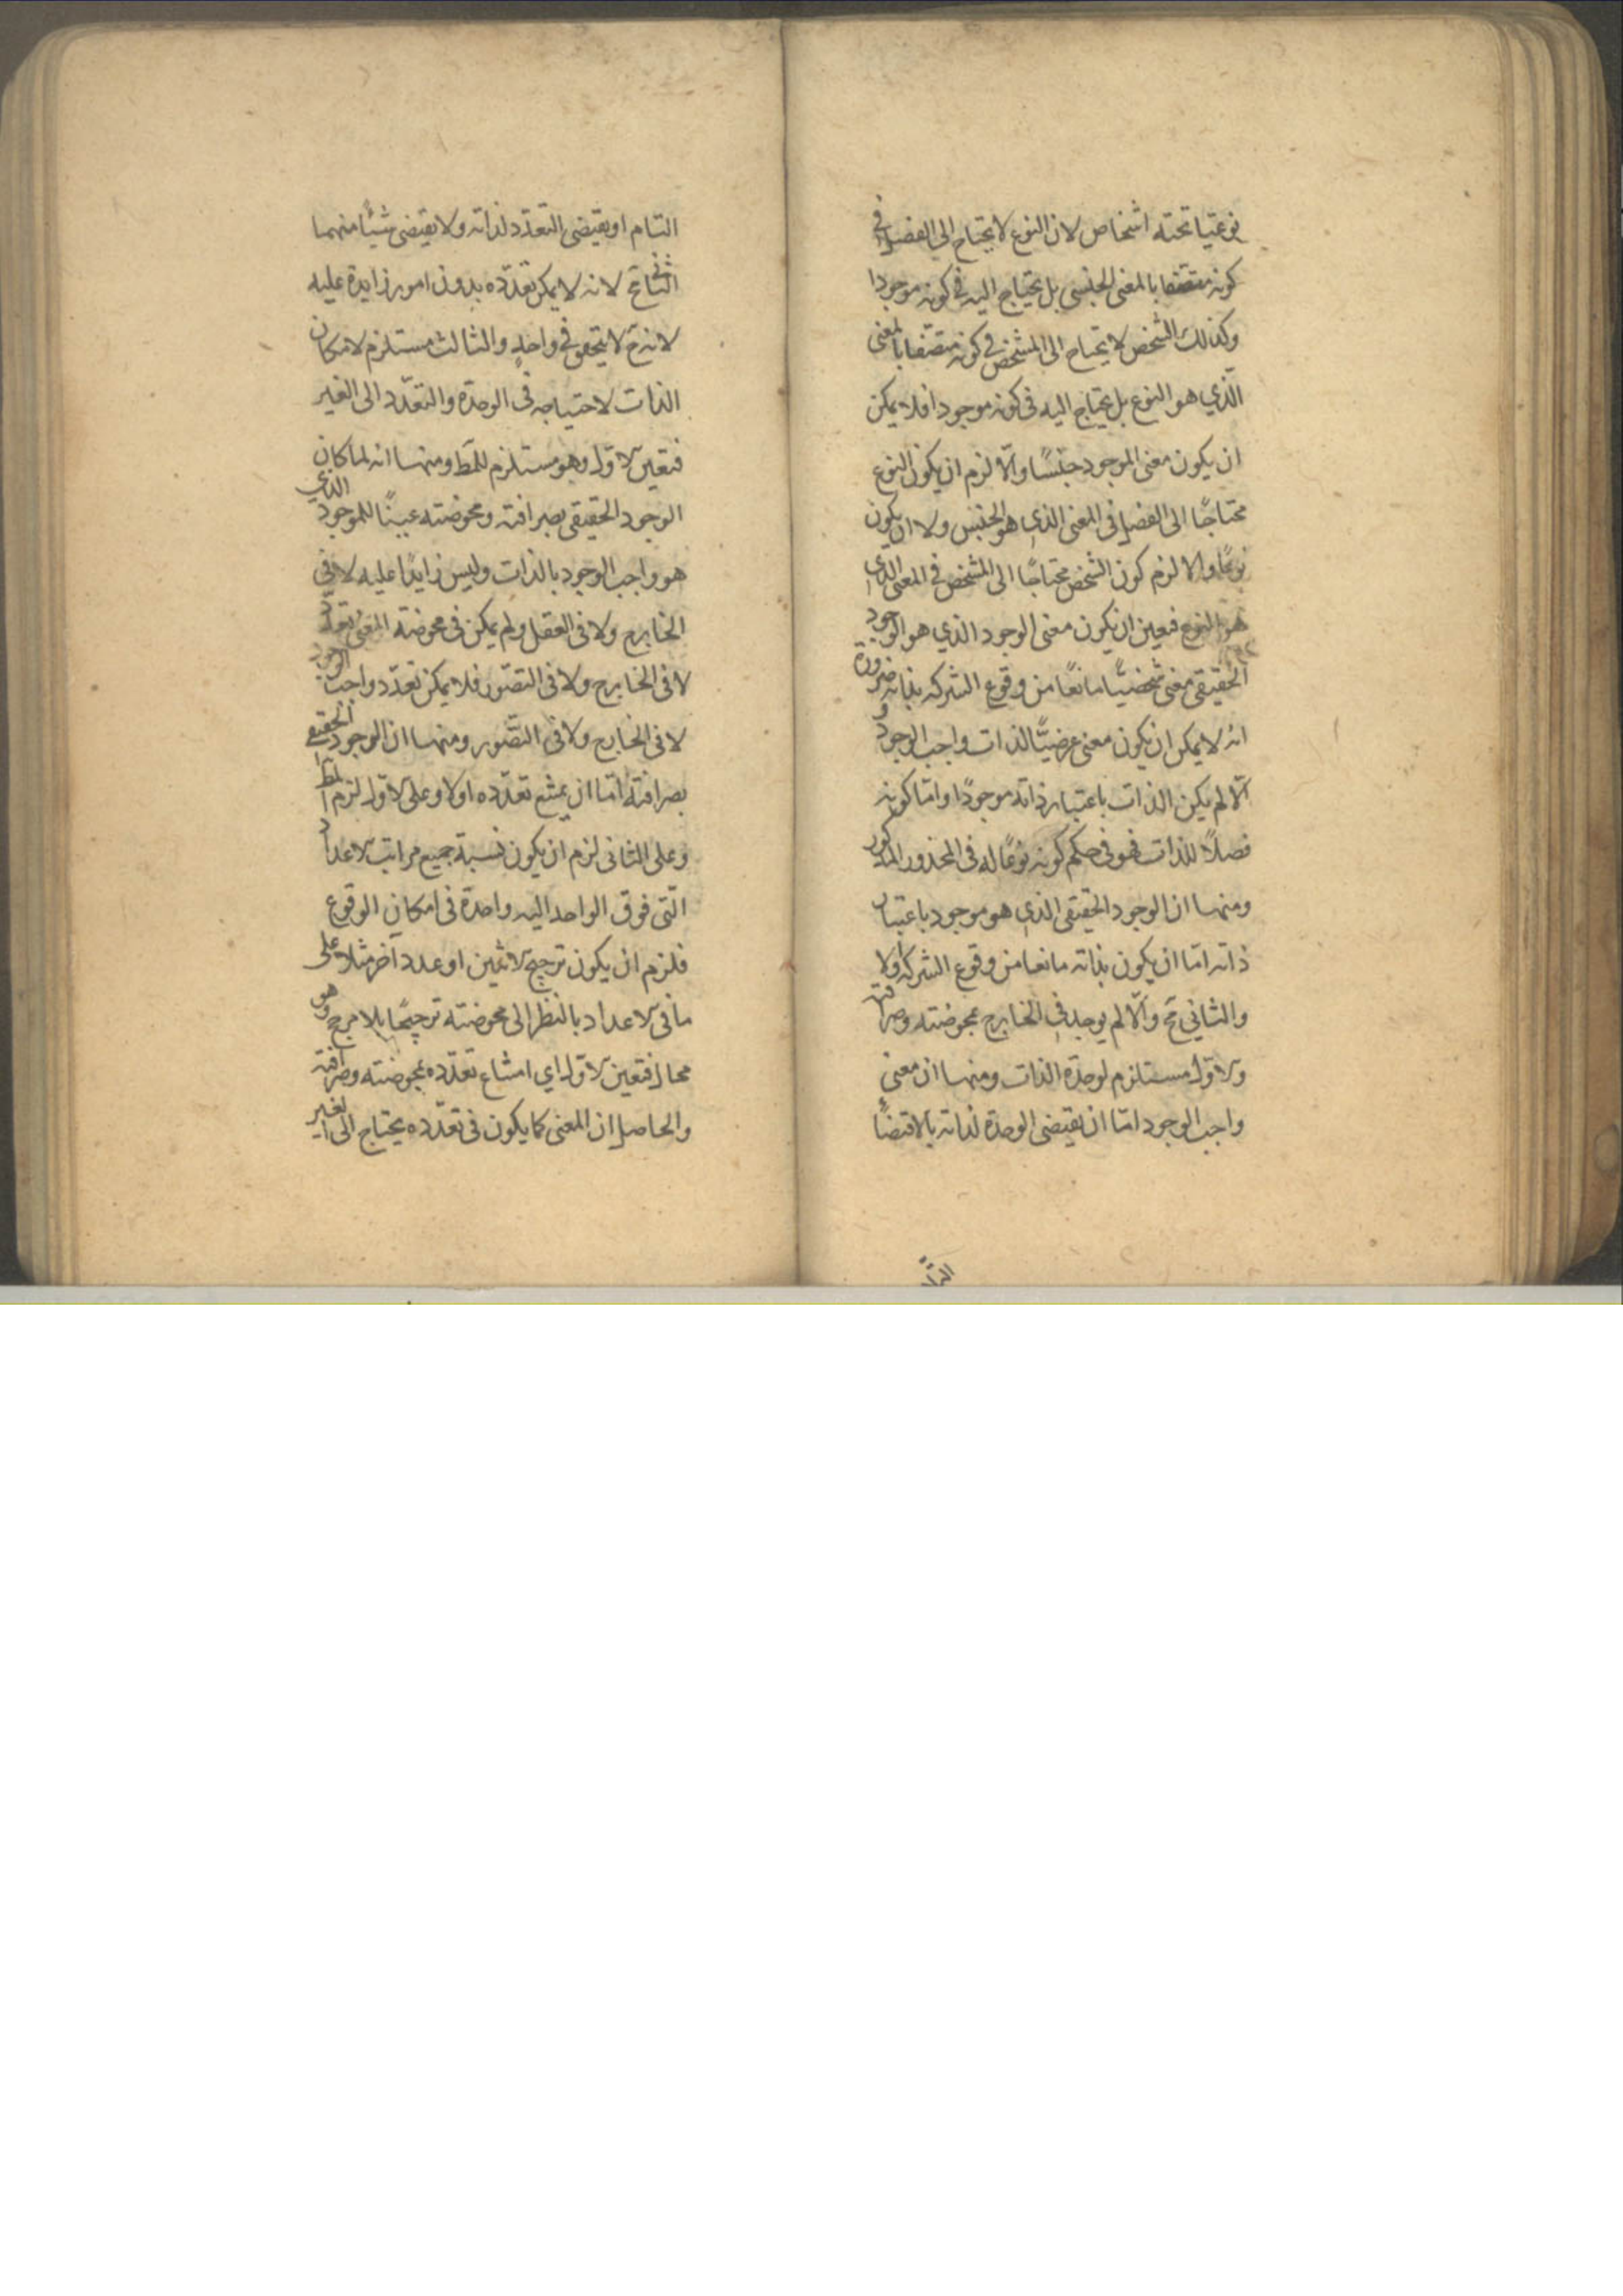 نوعيا تحته اشخاص لان النوع لا يحتاج الى الفصل في
كونه متصفا بالمعنى الجنسى بل يحتاج اليه في كونه موجودا
وكذلك الشخص لا يحتاج الى المشخص في كونه متصفا بالمعنى
الذي هو النوع بل يحتاج اليه في كونه موجودا فلا يمكن
ان يكون معنى الموجود جنسًا والّا لزم ان يكون النوع
محتاجًا الى الفصل في المعنى الذي هو الجنس ولا ان يكون
نوعًا والا لزم كون الشخص محتاجًا الى المشخص في المعنى الذي
هو النوع فتعين ان يكون معنى الوجود الذي هو الوجود
الحقيقى معنى شخصيًا مانعًا من وقوع الشركه بذاته ضرورة
انه لا يمكن ان يكون معنى عرضيًّا لذات واجب الوجود و
الّا لم يكن الذات باعتبار ذاته موجودًا وامّا كونه
فصلاً للذات فهو في حكم كونه نوعًا له في المحذور المذكور
ومنها ان الوجود الحقيقى الذي هو موجود باعتبار
ذاته امّا ان يكون بذاته مانعا من وقوع الشركه اولا
والثاني مح والّا لم يوجد في الخارج بمحوضته وصرافته
والاوّل مستلزم لوحدة الذات ومنها ان معنى
واجب الوجود امّا ان يقتضى الوحدة لذاته بالاقتضاء
التام او يقتضى التعدّد لذاته ولا يقتضى شيئًا منهما
الثاني مح لانه لا يمكن تعدّده بدون امور زايدة عليه
لانه ح لا يتحقق في واحد والثالث مستلزم لامكان
الذات لاحتياجه في الوحدة والتعدّد الى الغير
فتعين الاوّل وهو مستلزم للمط ومنها انه لما كان
الوجود الحقيقى بصرافته ومحوضته عينًا للموجود الذي
هو واجب الوجود بالذات وليس زايدًا عليه لا في
الخارج ولا في العقل ولم يمكن في محوضة المعنى تعدّد
لا في الخارج ولا في التصّور فلا يمكن تعدّد واجب الوجود
لا في الخارج ولا في التصّور ومنها ان الوجود الحقيقى
بصرافته امّا ان يمتنع تعدّده اولا وعلى الاوّل لزم المط
وعلى الثانى لزم ان يكون نسبة جميع مراتب الاعداد
الّتى فوق الواحد اليه واحدة في امكان الوقوع
فلزم ان يكون ترجيح الاثنين او عدد آخر مثلا على
ما في الاعداد بالنظر الى محوضته ترجيحًا بلا مرجح وهو
محال فتعين الاوّل اي امتناع تعدّده بمحوضته وصرافته
والحاصل ان المعنى كما يكون في تعدّده يحتاج الى الغير